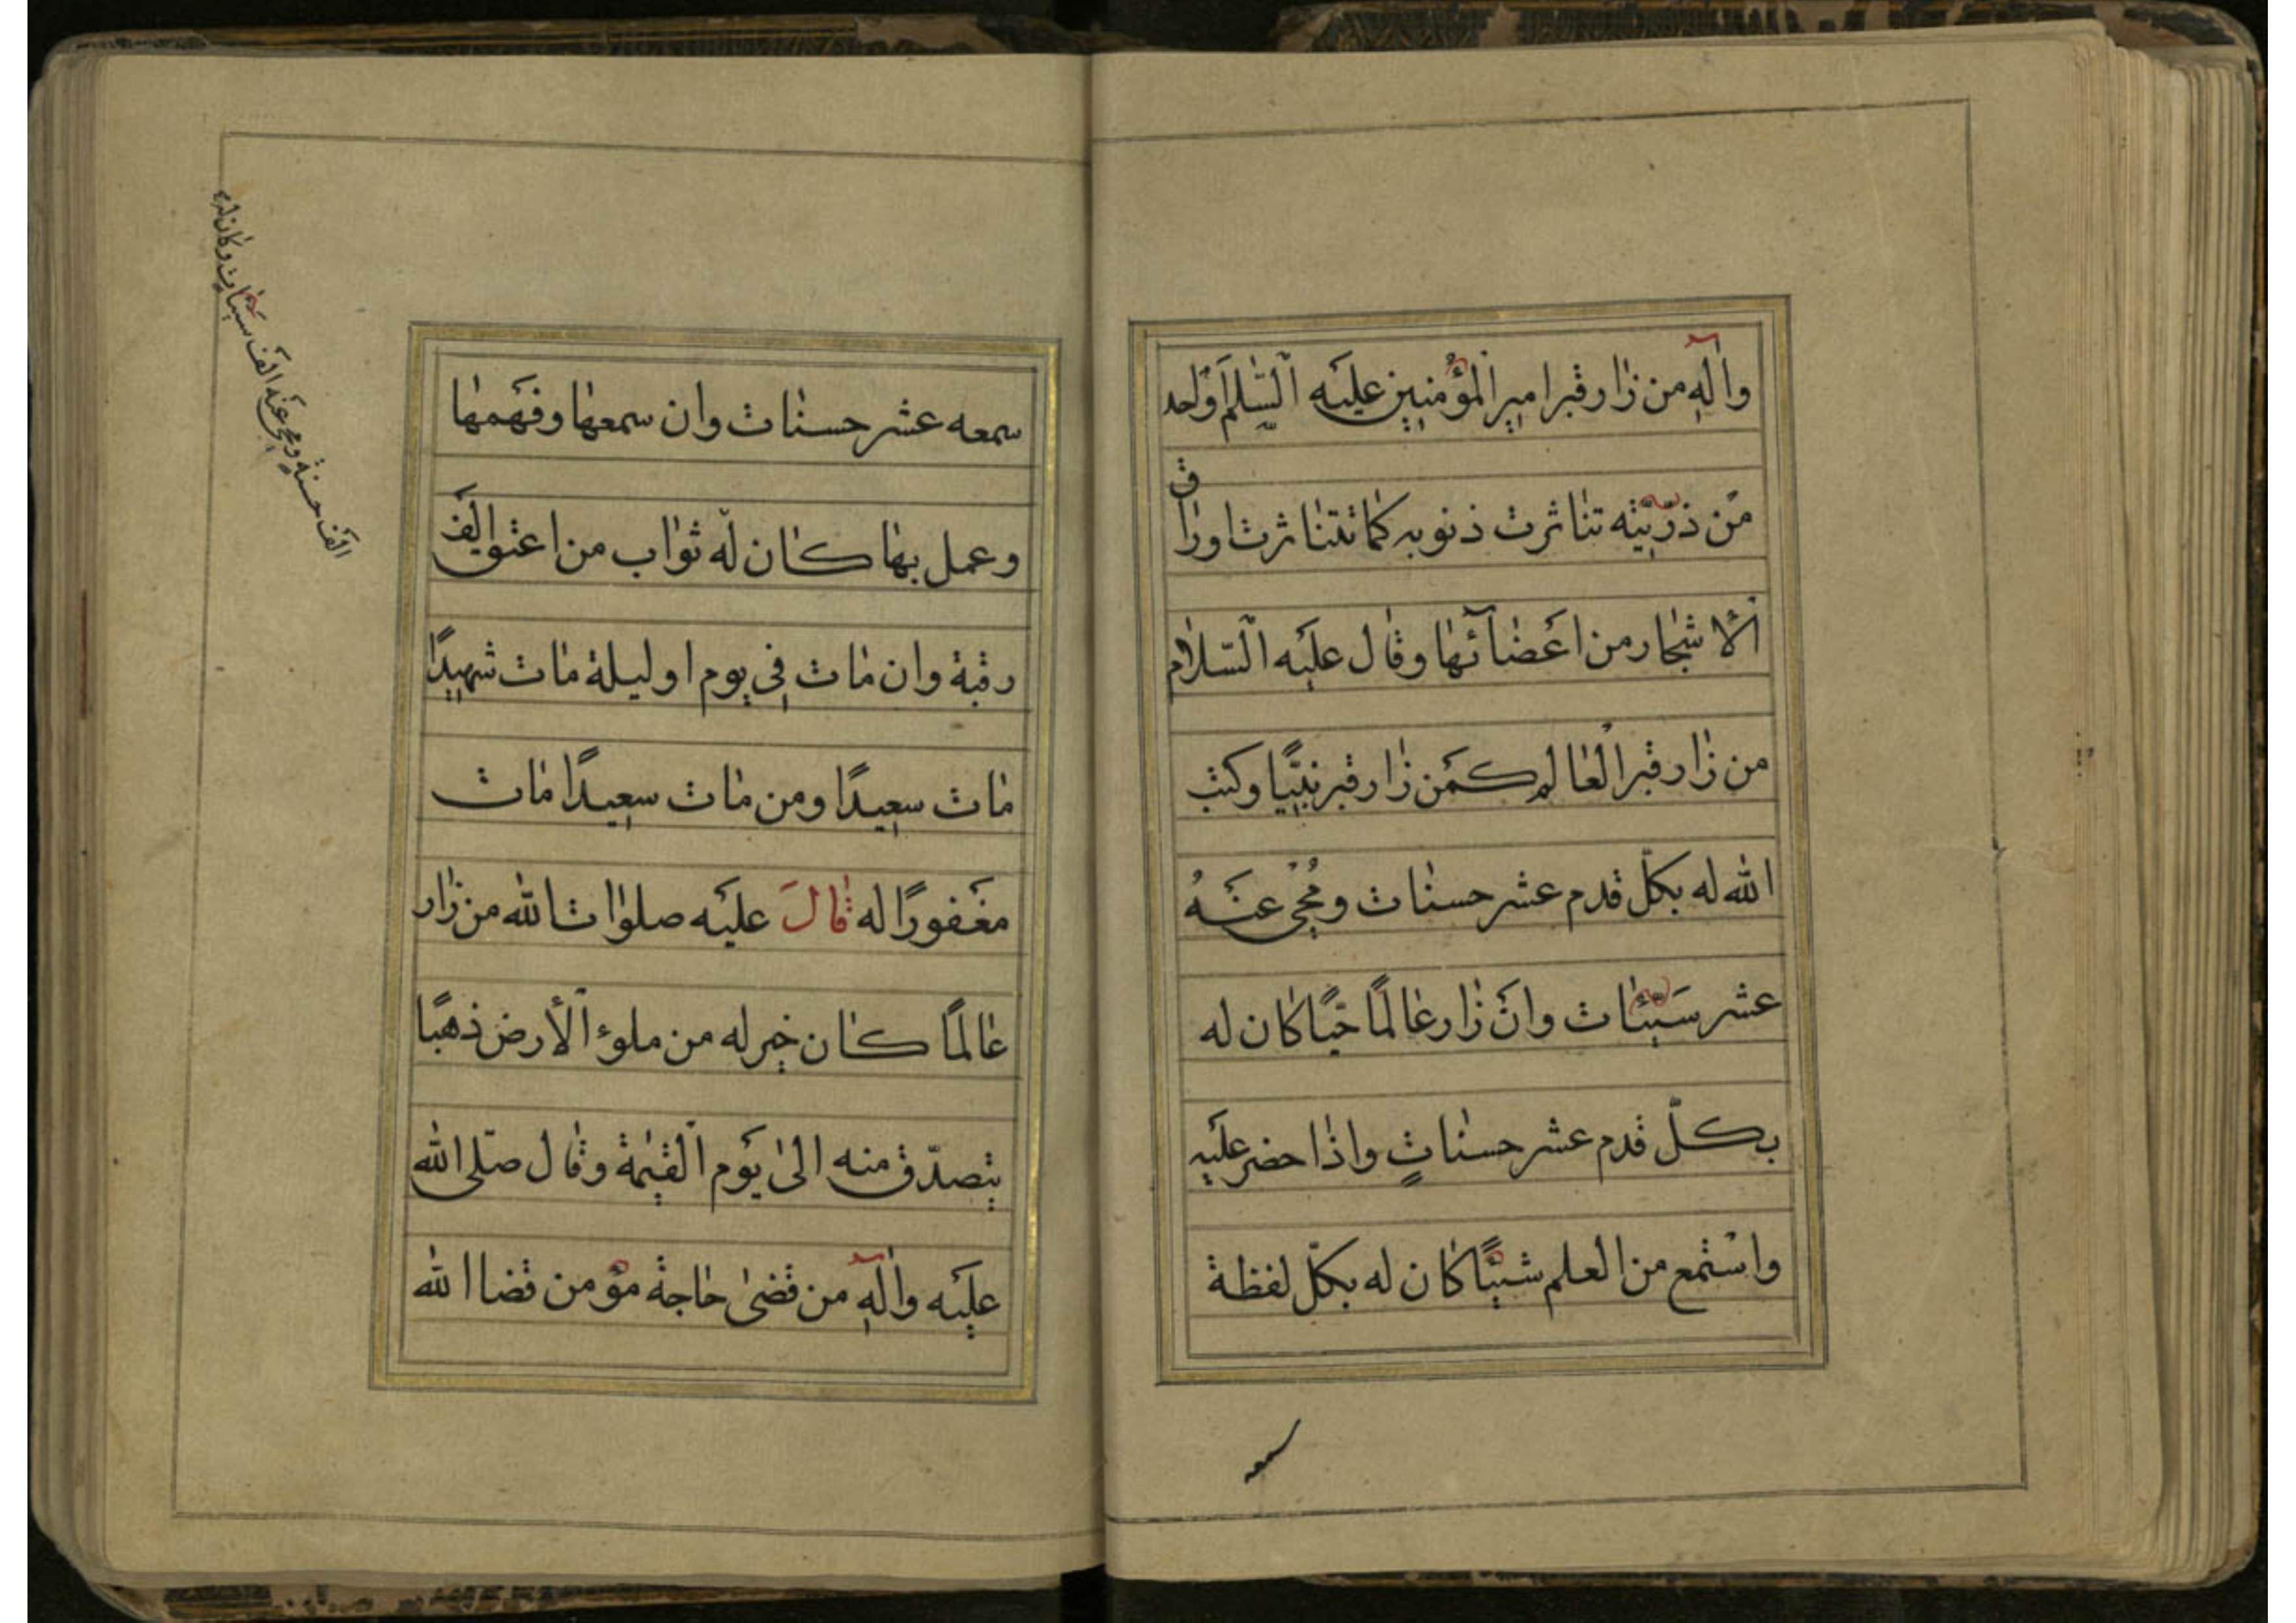 واٰلهِ من زٰار قبر امير اْلمؤْمنين عليَه اْلسّلٰام اَوْ لحد
مّن ذرّيّته تنٰاثرت ذنوبه كمٰا تتنٰاثرت اورٰاق
اْلاشجٰار من اعَضٰآئهٰا وقٰال عليَه السّلٰام
من زٰار قبر اْلعٰالم كمَن زٰار قبر نبيًّا وكتب
الله له بكلّ قدم عشر حسنٰات ومُحْيَ عنَهُ
عشر سَيّئٰات وانْ زٰار عٰالمًا حيًّا كٰان له
بكلّ قدم عشر حسنٰاتٍ واذٰا حضر عليَه
واسْتمع من العلم شيئًا كٰان له بكلّ لفظة
سمعه
سمعه عشر حسنٰات وان سمعهٰا وفهَمهٰا
وعمل بهٰا كٰان لَه ثوٰاب من اعتق الَف
رقبة وان مٰات فِي يوم او ليلة مٰات شهيدًا
مٰات سعِيدًا ومن مٰات سعِيدًا مٰات
مغَفورًا له قٰالَ عليَه صلوٰات الله من زٰار
عٰالمًا كٰان خير له من ملوء اْلأرض ذهبًا
يتصدّق منه الىٰ يوَم اْلقيٰمة وقٰال صلّى الله
عليَه واٰلهِ من قضىٰ حٰاجة مؤمن قضا الله
الَف حسنةٍ ومحى عنَه الَف سيئٰات وكٰان له